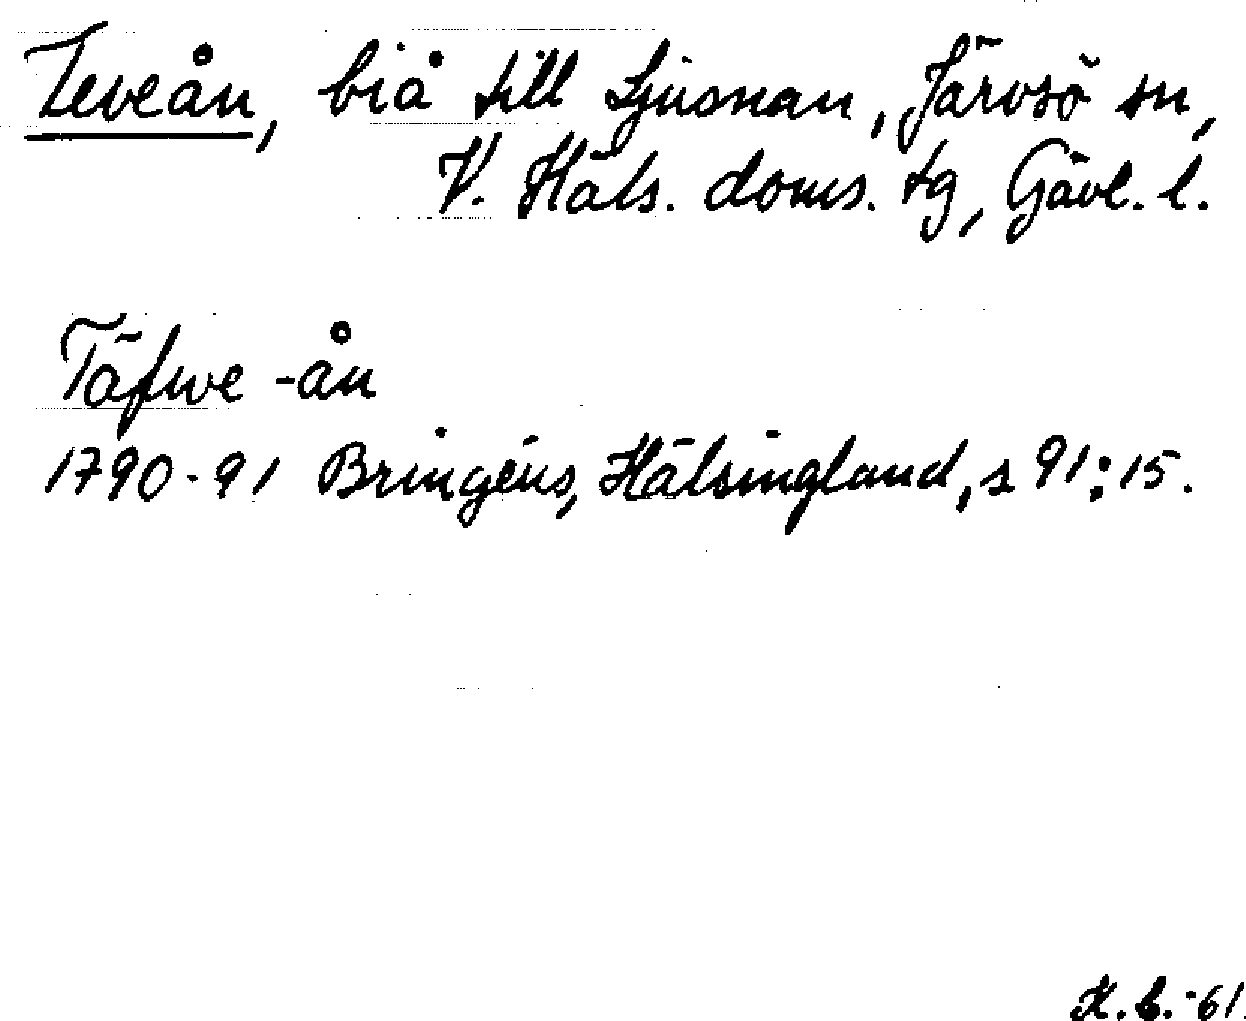 Teveån, biå till Ljusnan, Järvsö sn,
V. Häls. doms. tg, Gävl. l.
Täfwe -ån
1790-91 Bringéus, Hälsingland, s 91:15.
K.B.-61.